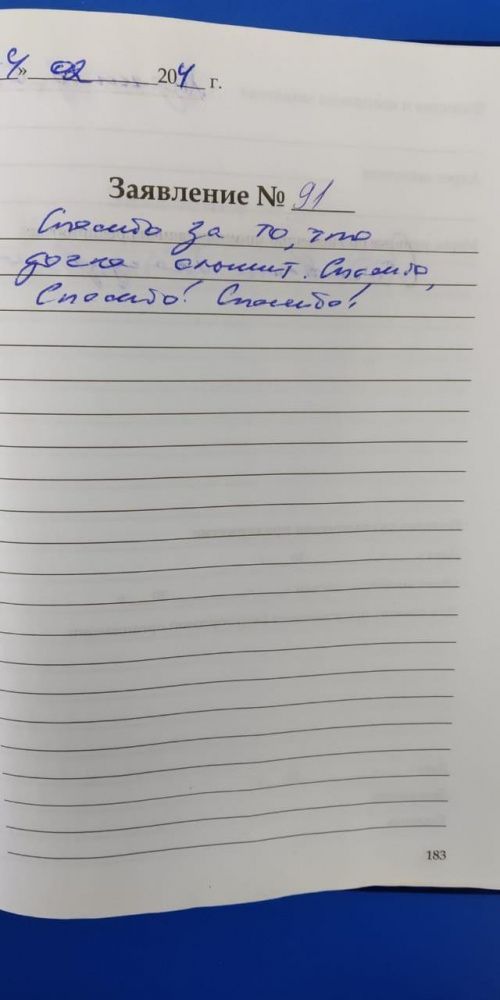 4» 02 204 г.
Заявление № 91
Спасибо за то, что
дочка слышит. Спасибо,
Спасибо! Спасибо!
183